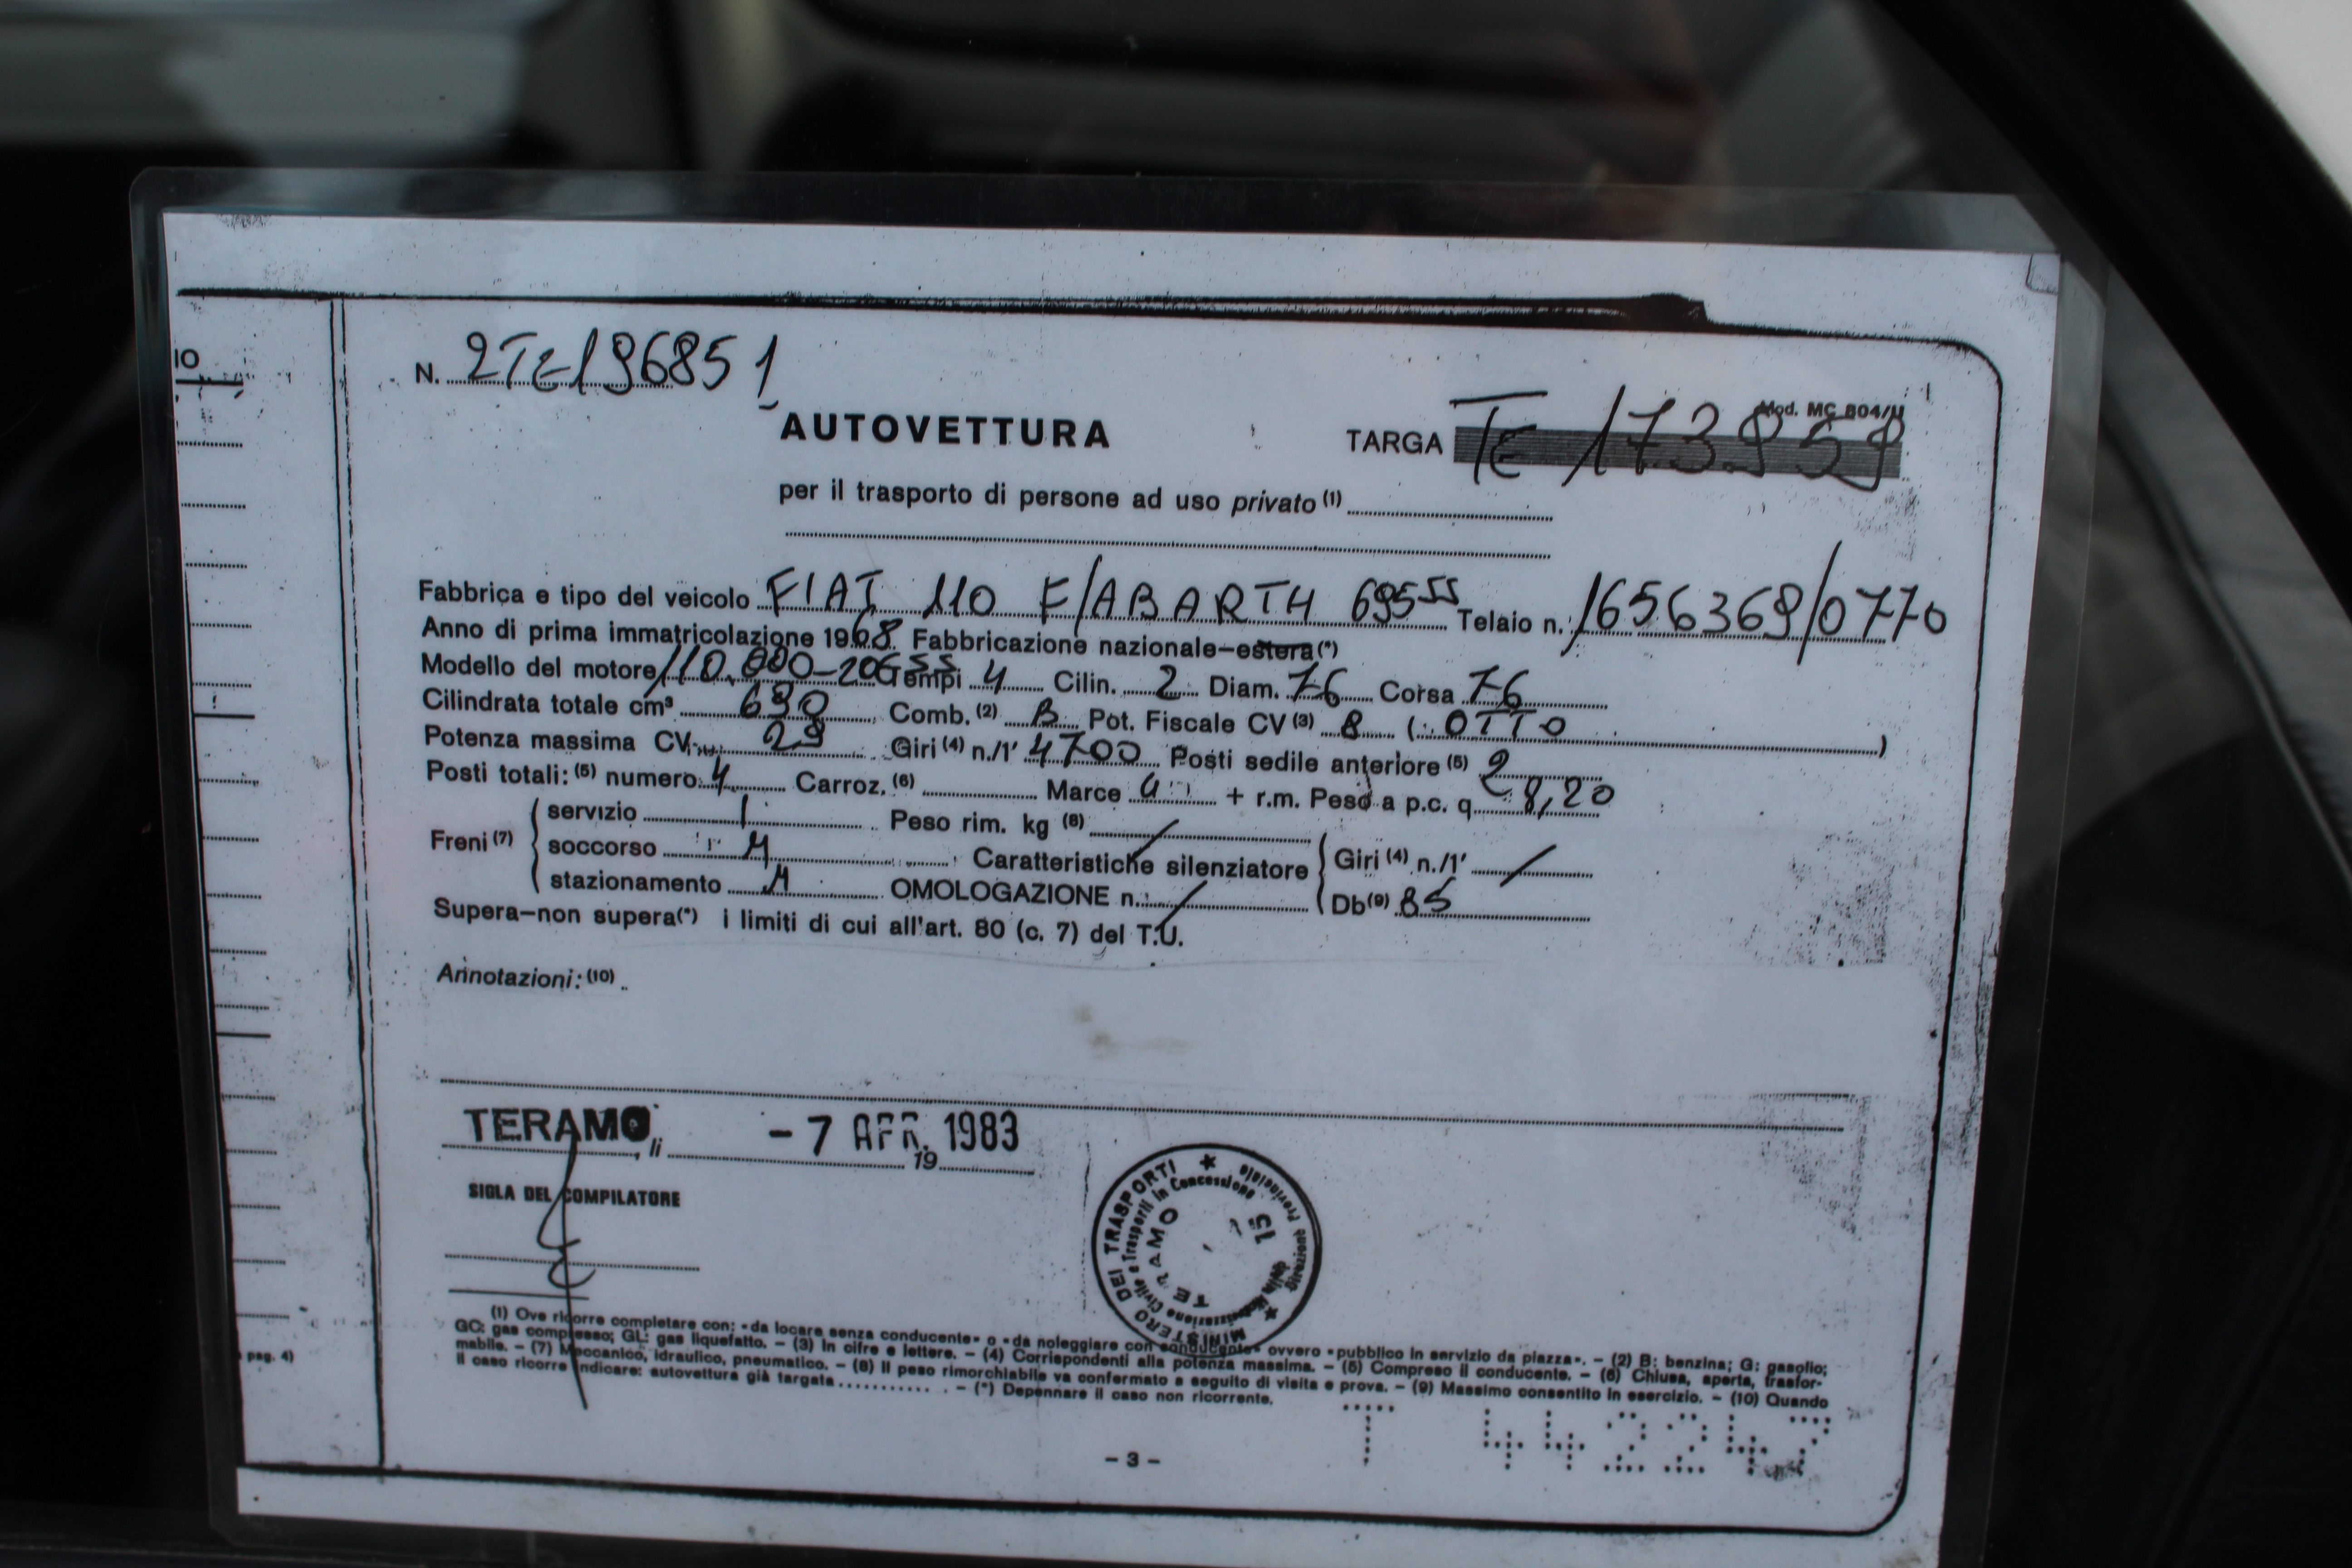 10
N. 2TE196851
Mod. MC 804/U
AUTOVETTURA TARGA TE 173.959
per il trasporto di persone ad uso privato (1)
Fabbrica e tipo del veicolo FIAT 110 F/ABARTH 695 SS Telaio n. 1656369/0770
Anno di prima immatricolazione 1968 Fabbricazione nazionale-estera (*)
Modello del motore 110.000-206 SS Tempi 4 Cilin. 2 Diam. 76 Corsa 76
Cilindrata totale cm³ 690 Comb. (2) B Pot. Fiscale CV (3) 8 (OTTO)
Potenza massima CV 29 Giri (4) n./1' 4700 Posti sedile anteriore (5) 2
Posti totali: (5) numero 4 Carroz. (6) Marce 4 + r.m. Peso a p.c. q 8,20
Freni (7) servizio I Peso rim. kg (8) /
soccorso M Caratteristiche silenziatore Giri (4) n./1' /
stazionamento M OMOLOGAZIONE n. / Db (9) 85
Supera-non supera(*) i limiti di cui all'art. 80 (c. 7) del T.U.
Annotazioni: (10)
TERAMO, li - 7 APR. 1983
19
SIGLA DEL COMPILATORE
MINISTERO DEI TRASPORTI
TERAMO
15
(1) Ove ricorre completare con: «da locare senza conducente» o «da noleggiare con conducente» ovvero «pubblico in servizio da piazza». - (2) B: benzina; G: gasolio;
GC: gas compresso; GL: gas liquefatto. - (3) In cifre e lettere. - (4) Corrispondenti alla potenza massima. - (5) Compreso il conducente. - (6) Chiusa, aperta, trasfor-
mabile. - (7) Meccanico, idraulico, pneumatico. - (8) Il peso rimorchiabile va confermato a seguito di visita e prova. - (9) Massimo consentito in esercizio. - (10) Quando
il caso ricorre indicare: autovettura già targata ........... . - (*) Depennare il caso non ricorrente.
pag. 4)
T 442247
- 3 -